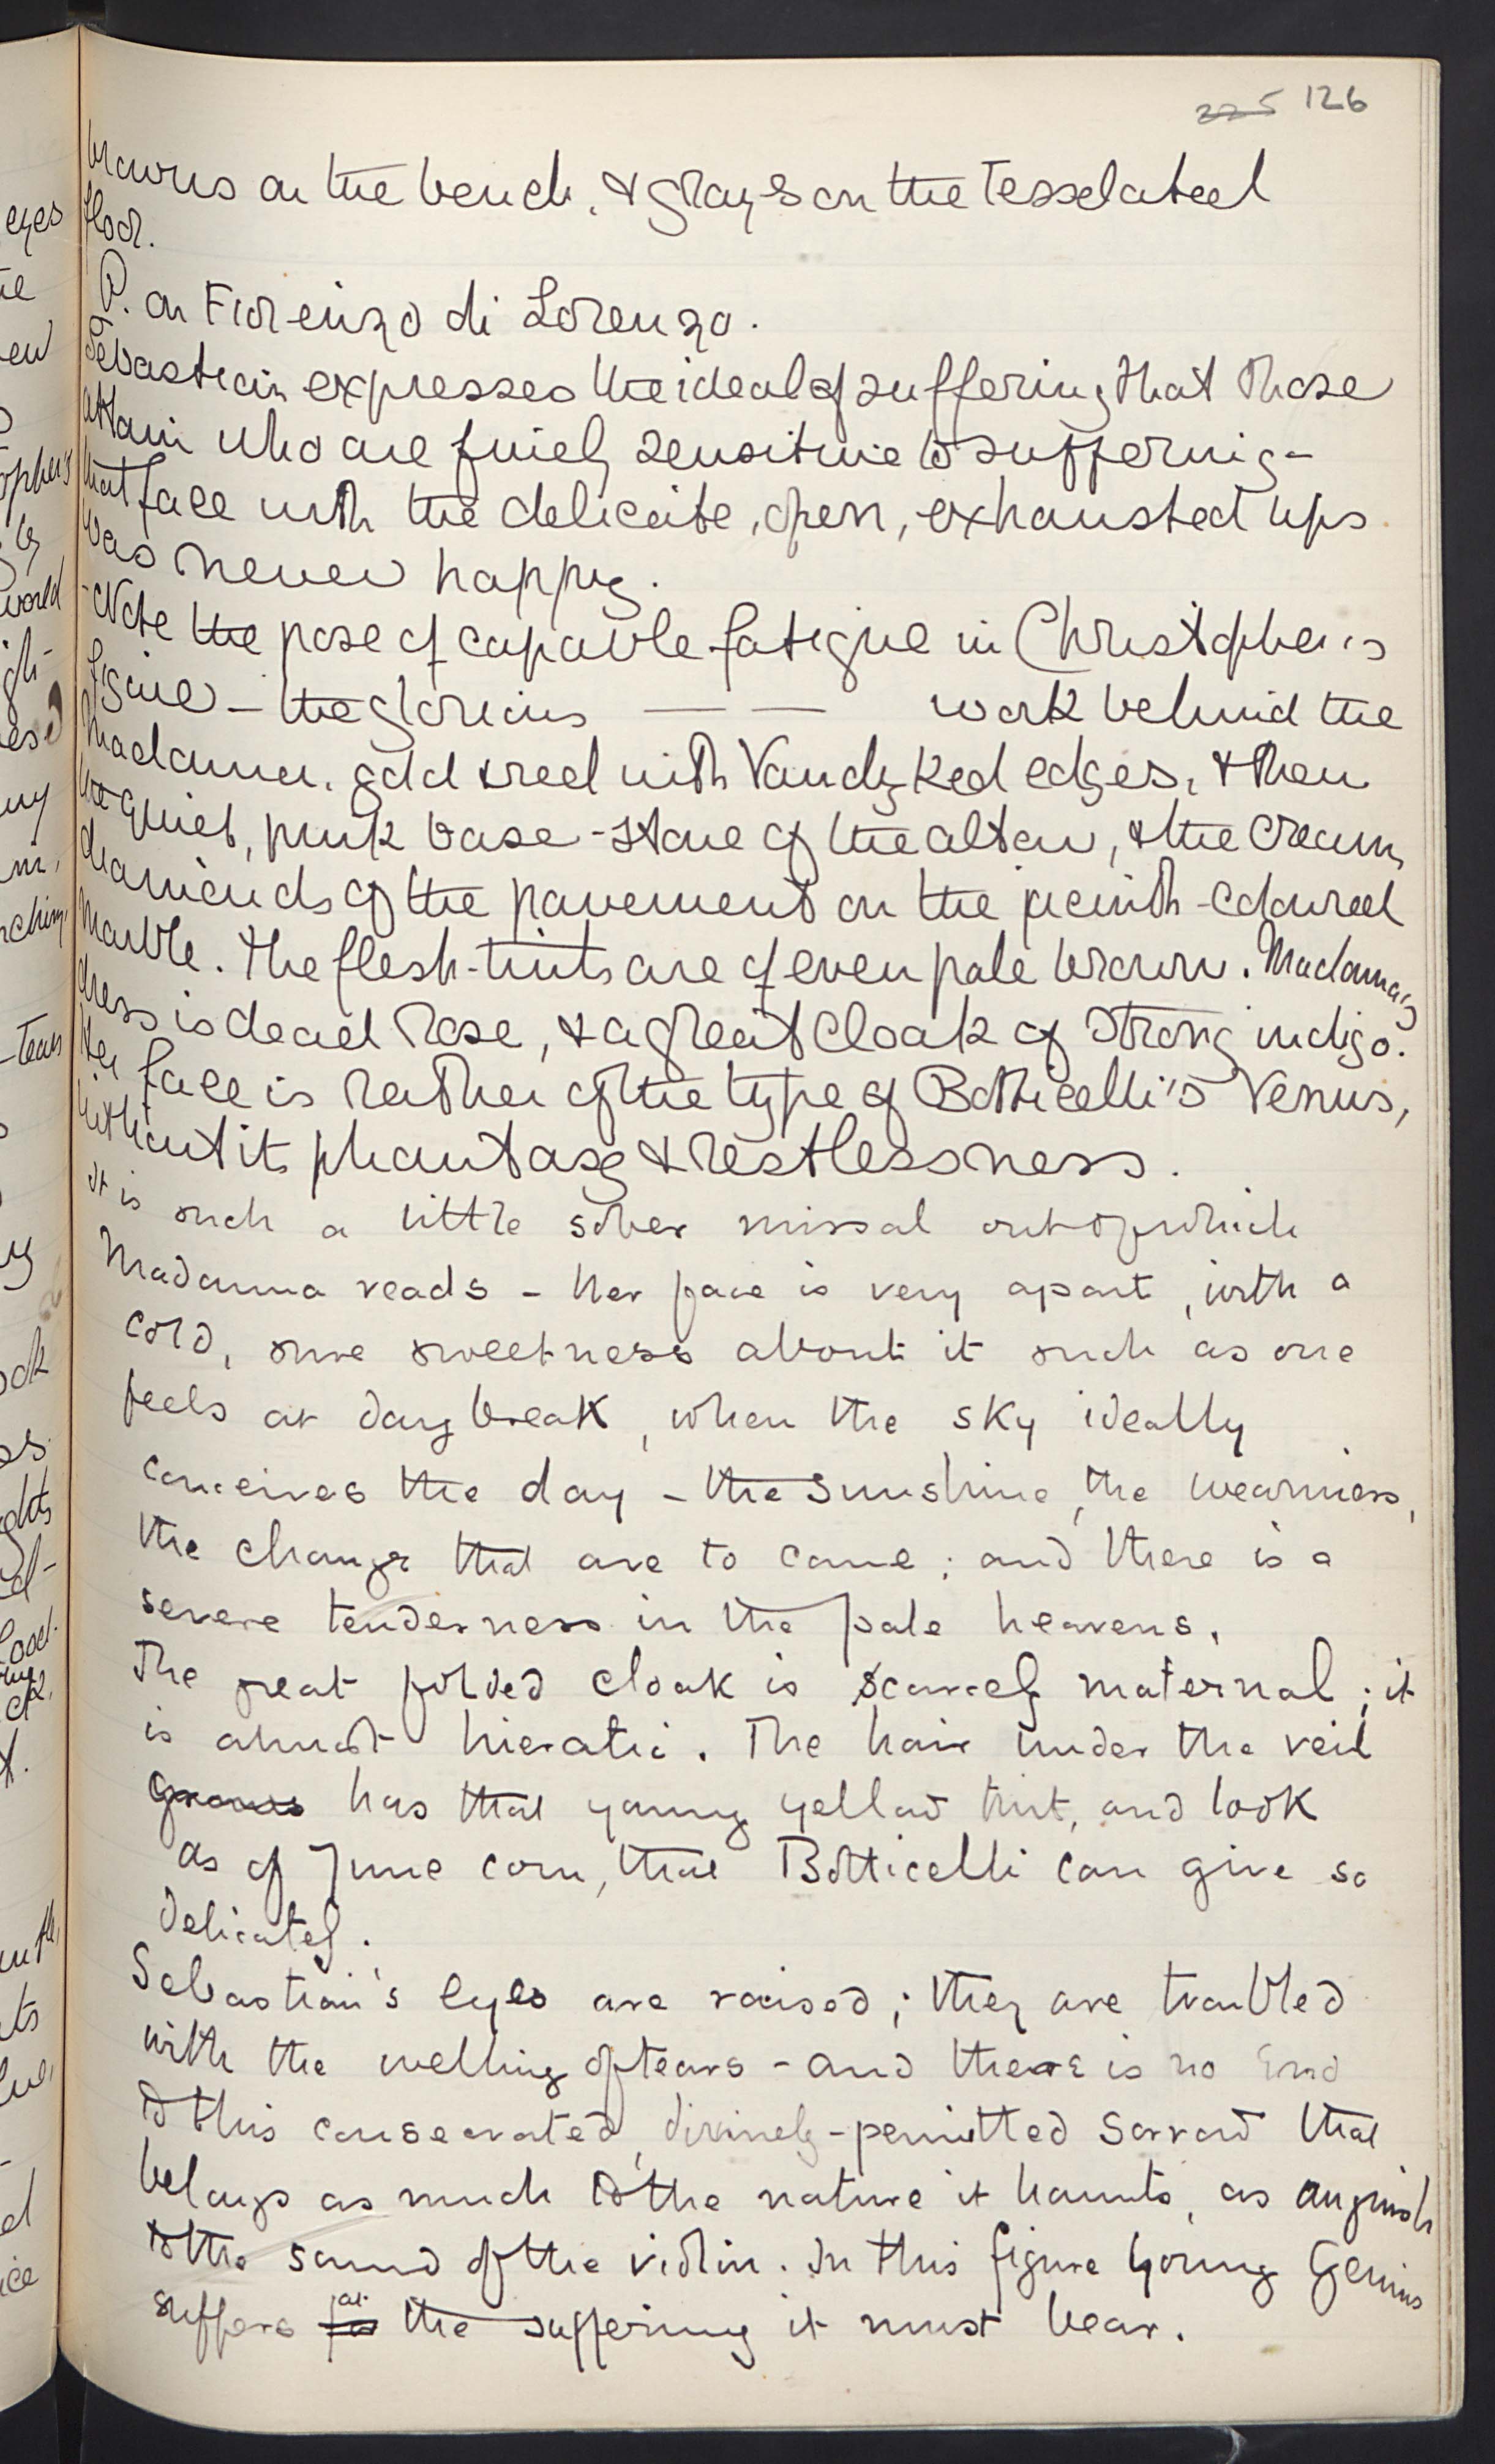 225 126
browns on the bench, & grays on the Tesselated
floor.
P. on Fiorenzo di Lorenzo.
Sebastian expresses the ideal of suffering that those
attain who are finely sensitive to suffering -
that face with the delicate, open, exhausted lips
was never happy.
- Note the pose of capable fatigue in Christopher's
figure - the glorious — — work behind the
Madonna, gold & red with Vandyked edges, & then
the quiet, pink base-stone of the altar, & the cream
diamonds of the pavement on the jacinth-coloured
marble. The flesh-tints are of even pale brown. Madonna's
dress is dead rose, & a great cloak of strong indigo.
Her face is rather of the type of Botticelli's Venus,
without its phantasy & restlessness.
It is such a little sober missal out of which
Madonna reads - her face is very apart, with a
cold, sure sweetness about it such as one
feels at daybreak, when the sky ideally
conceives the day - the sunshine, the weariness,
the change that are to come; and there is a
severe tenderness in the pale heavens.
The great folded cloak is scarcely maternal; it
is almost hieratic. The hair under the veil
grows has that young yellow tint, and look
as of June corn, that Botticelli can give so
delicately.
Sebastian's eyes are raised; they are troubled
with the welling of tears - and there is no end
to this consecrated, divinely-permitted sorrow that
belongs as much to the nature it haunts, as anguish
to the sound of the violin. In this figure young Genius
suffers for all the suffering it must bear.